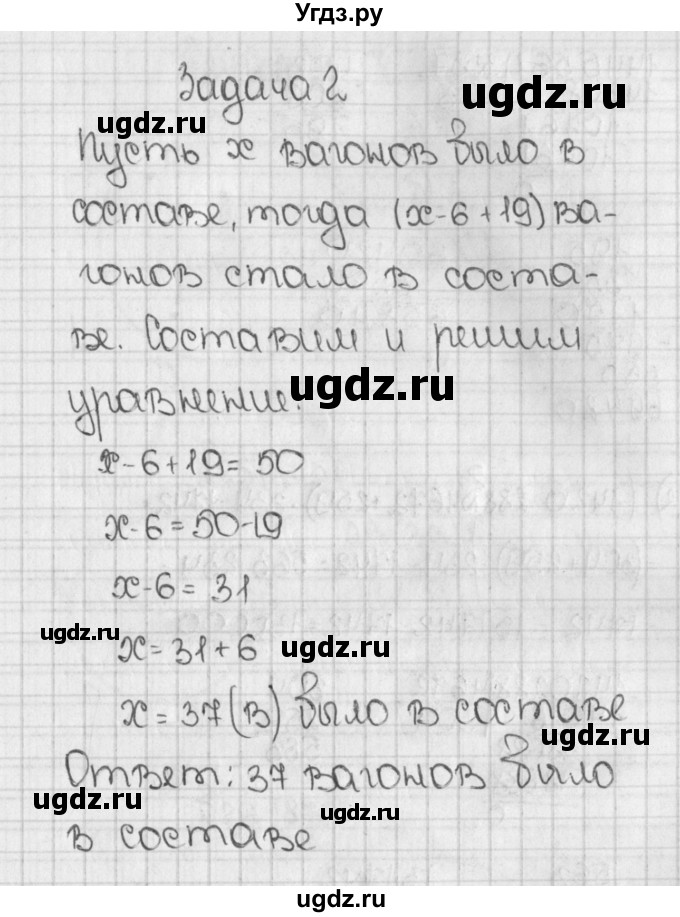 Угдз.ру
Задача 2
ugdz.ru
ugdz.ru
Пусть х вагонов было в
составе, тогда (х-6+19) ва-
гонов стало в соста-
ве. Составим и решим
ugdz.ru
уравнение.
х-6+19=50
х-6=50-19
х-6=31
ugdz.ru
х=31+6
ugdz.ru
х=37(в) было в составе
ugdz.ru
Ответ: 37 вагонов было
ugdz.ru
в составе
ugdz.ru